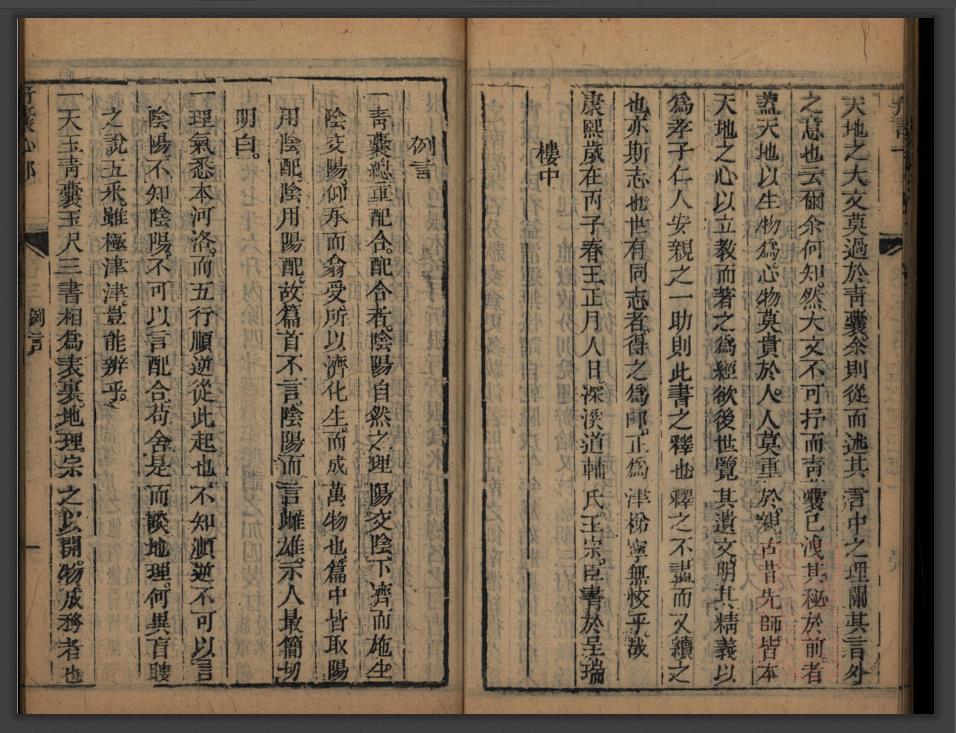 天地之大文莫過於青囊余則從而述其言中之理闡其言外
之意也云爾余何知然大文不可抒而青囊已洩其秘於前者
蓋天地以生物為心物莫貴於人人莫重於親古昔先師皆本
天地之心以立教而著之為經欲後世覽其遺文明其精義以
為孝子仁人安親之一助則此書之釋也釋之不盡而又續之
也亦斯志也世有同志者得之為郎正為津梯寧無恔乎哉
康熙歲在丙子春王正月人日深溪道輔氏王宗臣書於呈瑞
樓中
例言
一青囊總重配合配合者陰陽自然之理陽交陰下濟而施生
陰交陽仰承而翕受所以濟化生而成萬物也篇中皆取陽
用陰配陰用陽配故篇首不言陰陽而言雌雄示人最簡切
明白
一理氣悉本河洛而五行順逆從此起也不知順逆不可以言
陰陽不知陰陽不可以言配合苟舍是而談地理何異盲瞍
之說五采雖極津津豈能辨乎
一天玉青囊玉尺三書相為表裏地理宗之以開物成務者也
例言
一